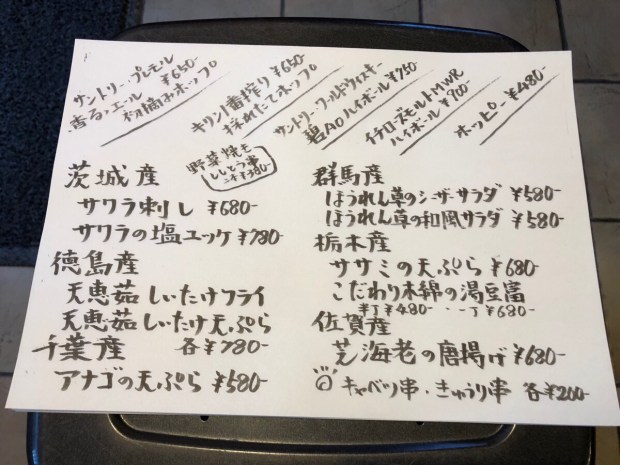 サントリープレモル
香るエール ¥650-
初摘みホップ
キリン一番搾り ¥650-
採れたてホップ
サントリーワールドウィスキー
碧Aoハイボール ¥750-
イチローズモルトMWR
ハイボール ¥700-
ホッピー ¥480-
野菜焼き
ししとう串
二本¥380-
茨城産
サワラ刺し ¥680-
サワラの塩ユッケ ¥780-
徳島産
天恵茹しいたけフライ
天恵茹しいたけ天ぷら
各¥780-
千葉産
アナゴの天ぷら ¥580-
群馬産
ほうれん草のシーザーサラダ ¥580-
ほうれん草の和風サラダ ¥580-
栃木産
ササミの天ぷら ¥680-
こだわり木綿の湯豆富
半丁¥480- ・ 一丁¥680-
佐賀産
芝海老の唐揚げ ¥680-
キャベツ串・きゅうり串 各¥200-